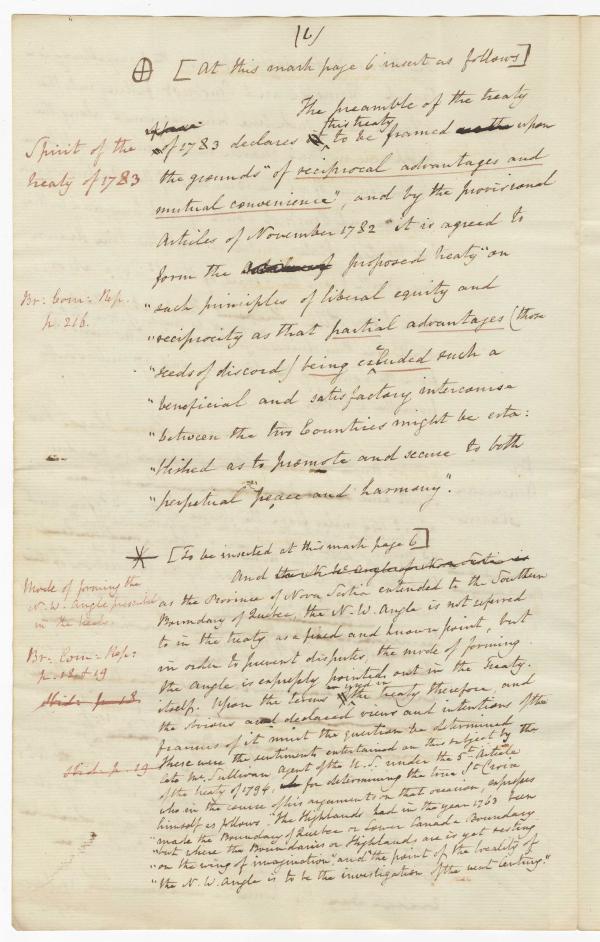 (6)
[At this mark page 6 insert as follows]
The preamble of the treaty
of 1783 declares this treaty to be framed upon
Spirit of the
treaty of 1783
the grounds "of reciprocal advantages and
mutual convenience", and by the provisional
Articles of November 1782 "it is agreed to
form the proposed treaty "on
Br: Com: Rep.
p. 216.
"such principles of liberal equity and
"reciprocity as that partial advantages (those
"seeds of discord) being excluded such a
"beneficial and satisfactory intercourse
"between the two Countries might be esta:
"blished as to promote and secure to both
"perpetual peace and harmony".
[To be inserted at this mark page 6]
And the N. W. Angle of Nova Scotia is
Mode of forming the
N. W. Angle prescribed
in the treaty.
as the Province of Nova Scotia extended to the Southern
Boundary of Quebec, the N. W. Angle is not referred
to in the treaty as a fixed and known point, but
in order to prevent disputes, the mode of forming
Br: Com: Rep:
p. 18 & 19
the Angle is expressly pointed out in the Treaty
itself. Upon the terms used in the treaty therefore, and
Ibid: p. 18
the obvious and declared views and intentions of the
framers of it must the question be determined
These were the sentiments entertained on this subject by the
Ibid. p. 19
late Mr. Sullivan Agent of the U. S. under the 5th Article
of the treaty of 1794, for determining the true St Croix
who in the course of his arguments on that occasion, expresses
himself as follows. "The Highlands had in the year 1763 been
"made the Boundary of Quebec or Lower Canada Boundary
"but where the Boundaries or Highlands are is yet resting
"on the wing of imagination" and "the point of the locality of
"the N. W. Angle is to be the investigation of the next Century."